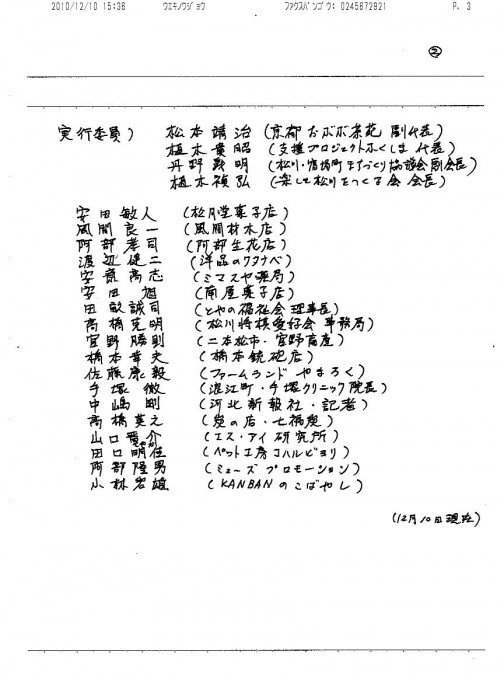 2010/12/10 15:36 ウエキノウジョウ ファクスバンゴウ: 0245672921 P. 3
②
実行委員) 松本靖治 (京都おぶぶ茶苑 副代表)
植木貴昭 (支援プロジェクトふくしま 代表)
丹野義明 (松川・宿場町まちづくり協議会副会長)
植木禎弘 (楽して松川をつくる会 会長)
安田敏人 (松月堂菓子店)
風間良一 (風間材木店)
阿部孝司 (阿部生花店)
渡辺健二 (洋品のワタナベ)
安斎高志 (ミマスヤ薬局)
安田 (南屋菓子店)
田敏誠司 (とやの福祉会 理事長)
高橋克明 (松川将棋愛好会 事務局)
宮野勝則 (二本松市・宮野畜産)
橋本幸夫 (橋本銃砲店)
佐藤康毅 (ファームランド やまろく)
手塚徹 (浪江町・手塚クリニック院長)
中嶋剛 (河北新報社・記者)
高橋英之 (炭の店・七福炭)
山口晋介 (エス・アイ研究所)
田口明佳 (ペット工房コハルビヨリ)
阿部隆男 (ミューズプロモーション)
小林宏雄 (KANBANのこばやし)
(12月10日現在)